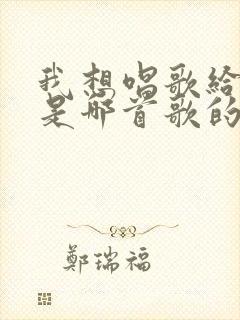 我想唱歌給
是那首歌的
鄭瑞福